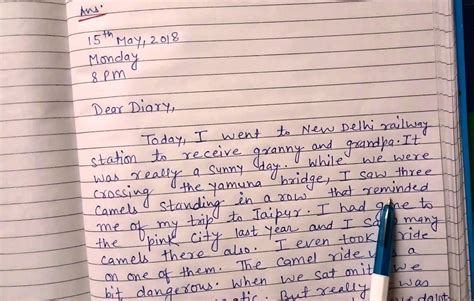 Ans.
15th May, 2018
Monday
8 PM
Dear Diary,
Today, I went to New Delhi railway
station to receive granny and grandpa. It
was really a sunny day. While we were
crossing the yamuna bridge, I saw three
camels standing in a row that reminded
me of my trip to Jaipur. I had gone to
the pink city last year and I saw many
camels there also. I even took ride
on one of them. The camel ride was a
bit dangerous. When we sat on it we
But really was